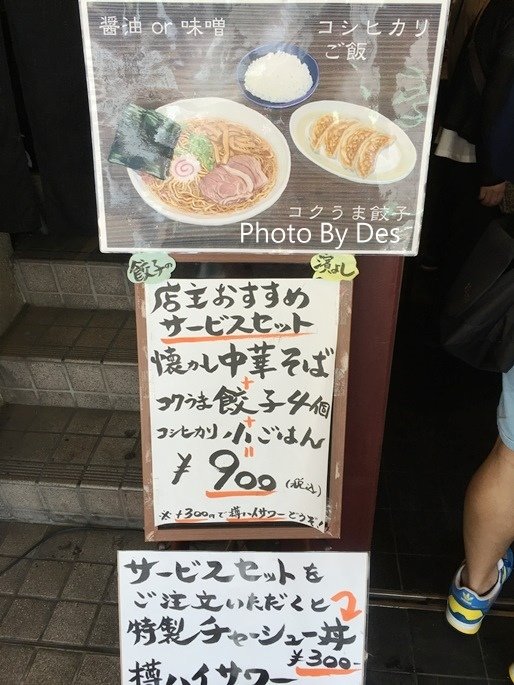 醤油 or 味噌
コシヒカリ
ご飯
コクうま餃子
Photo By Des
餃子の
濱よし
店主おすすめ
サービスセット
懐かし中華そば
+
コクうま餃子4個
+
コシヒカリ小ごはん
=
¥900(税込)
※+300円で樽ハイサワーどうぞ!!
サービスセットを
ご注文いただくと
特製チャーシュー丼
¥300-
樽ハイサワー